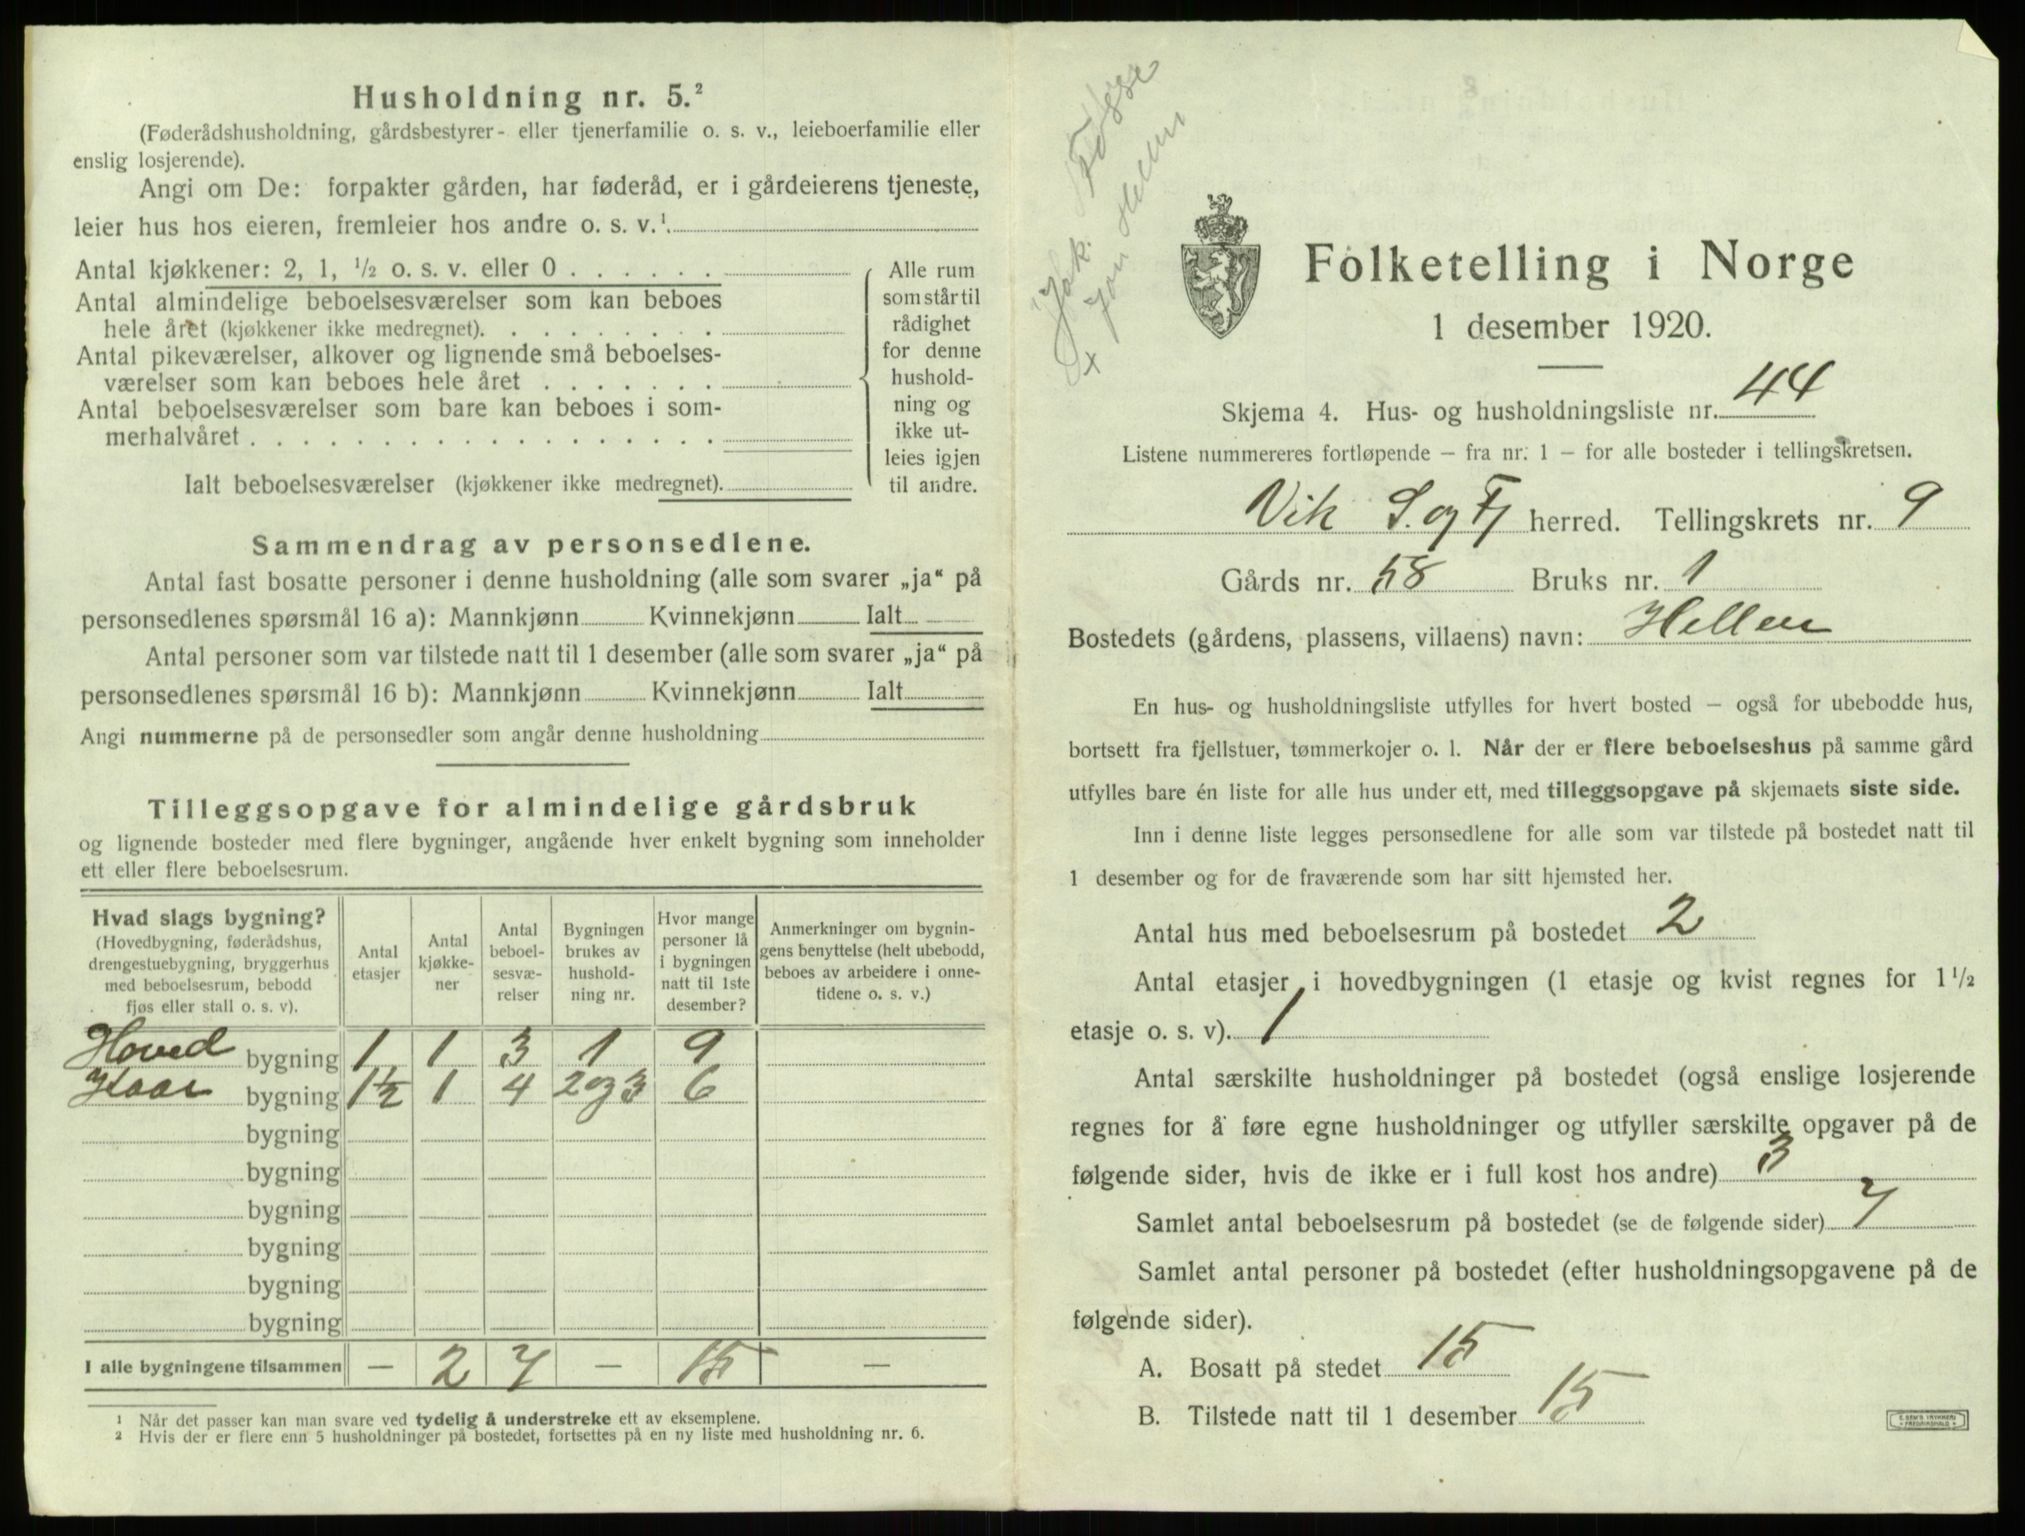 Husholdning nr. 5.²
(Føderådshusholdning, gårdsbestyrer- eller tjenerfamilie o. s. v., leieboerfamilie eller
enslig losjerende).
Angi om De: forpakter gården, har føderåd, er i gårdeierens tjeneste,
leier hus hos eieren, fremleier hos andre o. s. v.¹
Antal kjøkkener: 2, 1, ½ o. s. v. eller 0 . . . . . .
Antal almindelige beboelsesværelser som kan beboes
hele året (kjøkkener ikke medregnet). . . . . . . . .
Antal pikeværelser, alkover og lignende små beboelses-
værelser som kan beboes hele året . . . . . . .
Antal beboelsesværelser som bare kan beboes i som-
merhalvåret . . . . . . . . . . . . . . . . . .
Ialt beboelsesværelser (kjøkkener ikke medregnet).
Alle rum
som står til
rådighet
for denne
hushold-
ning og
ikke ut-
leies igjen
til andre.
Sammendrag av personsedlene.
Antal fast bosatte personer i denne husholdning (alle som svarer „ja“ på
personsedlenes spørsmål 16 a): Mannkjønn Kvinnekjønn Ialt
Antal personer som var tilstede natt til 1 desember (alle som svarer „ja“ på
personsedlenes spørsmål 16 b): Mannkjønn Kvinnekjønn Ialt
Angi nummerne på de personsedler som angår denne husholdning
Tilleggsopgave for almindelige gårdsbruk
og lignende bosteder med flere bygninger, angående hver enkelt bygning som inneholder
ett eller flere beboelsesrum.
Hvad slags bygning?
(Hovedbygning, føderådshus,
drengestuebygning, bryggerhus
med beboelsesrum, bebodd
fjøs eller stall o. s. v).
Antal
etasjer
Antal
kjøkke-
ner
Antal
beboel-
sesvæ-
relser
Bygningen
brukes av
hushold-
ning nr.
Hvor mange
personer lå
i bygningen
natt til 1ste
desember?
Anmerkninger om bygnin-
gens benyttelse (helt ubebodd,
beboes av arbeidere i onne-
tidene o. s. v.)
Hoved bygning 1 1 3 1 9
Kaar bygning 1½ 1 4 2 og 3 6
bygning
bygning
bygning
bygning
bygning
bygning
I alle bygningene tilsammen — 2 7 — 15 —
¹ Når det passer kan man svare ved tydelig å understreke ett av eksemplene.
² Hvis der er flere enn 5 husholdninger på bostedet, fortsettes på en ny liste med husholdning nr. 6.
Folketelling i Norge
1 desember 1920.
Skjema 4. Hus- og husholdningsliste nr. 44
Listene nummereres fortløpende — fra nr. 1 — for alle bosteder i tellingskretsen.
Vik S. og Fj herred. Tellingskrets nr. 9
Gårds nr. 58 Bruks nr. 1
Bostedets (gårdens, plassens, villaens) navn: Hellen
En hus- og husholdningsliste utfylles for hvert bosted — også for ubebodde hus,
bortsett fra fjellstuer, tømmerkojer o. l. Når der er flere beboelseshus på samme gård
utfylles bare én liste for alle hus under ett, med tilleggsopgave på skjemaets siste side.
Inn i denne liste legges personsedlene for alle som var tilstede på bostedet natt til
1 desember og for de fraværende som har sitt hjemsted her.
Antal hus med beboelsesrum på bostedet 2
Antal etasjer i hovedbygningen (1 etasje og kvist regnes for 1½
etasje o. s. v). 1
Antal særskilte husholdninger på bostedet (også enslige losjerende
regnes for å føre egne husholdninger og utfyller særskilte opgaver på de
følgende sider, hvis de ikke er i full kost hos andre) 3
Samlet antal beboelsesrum på bostedet (se de følgende sider) 7
Samlet antal personer på bostedet (efter husholdningsopgavene på de
følgende sider).
A. Bosatt på stedet 15
B. Tilstede natt til 1 desember 15